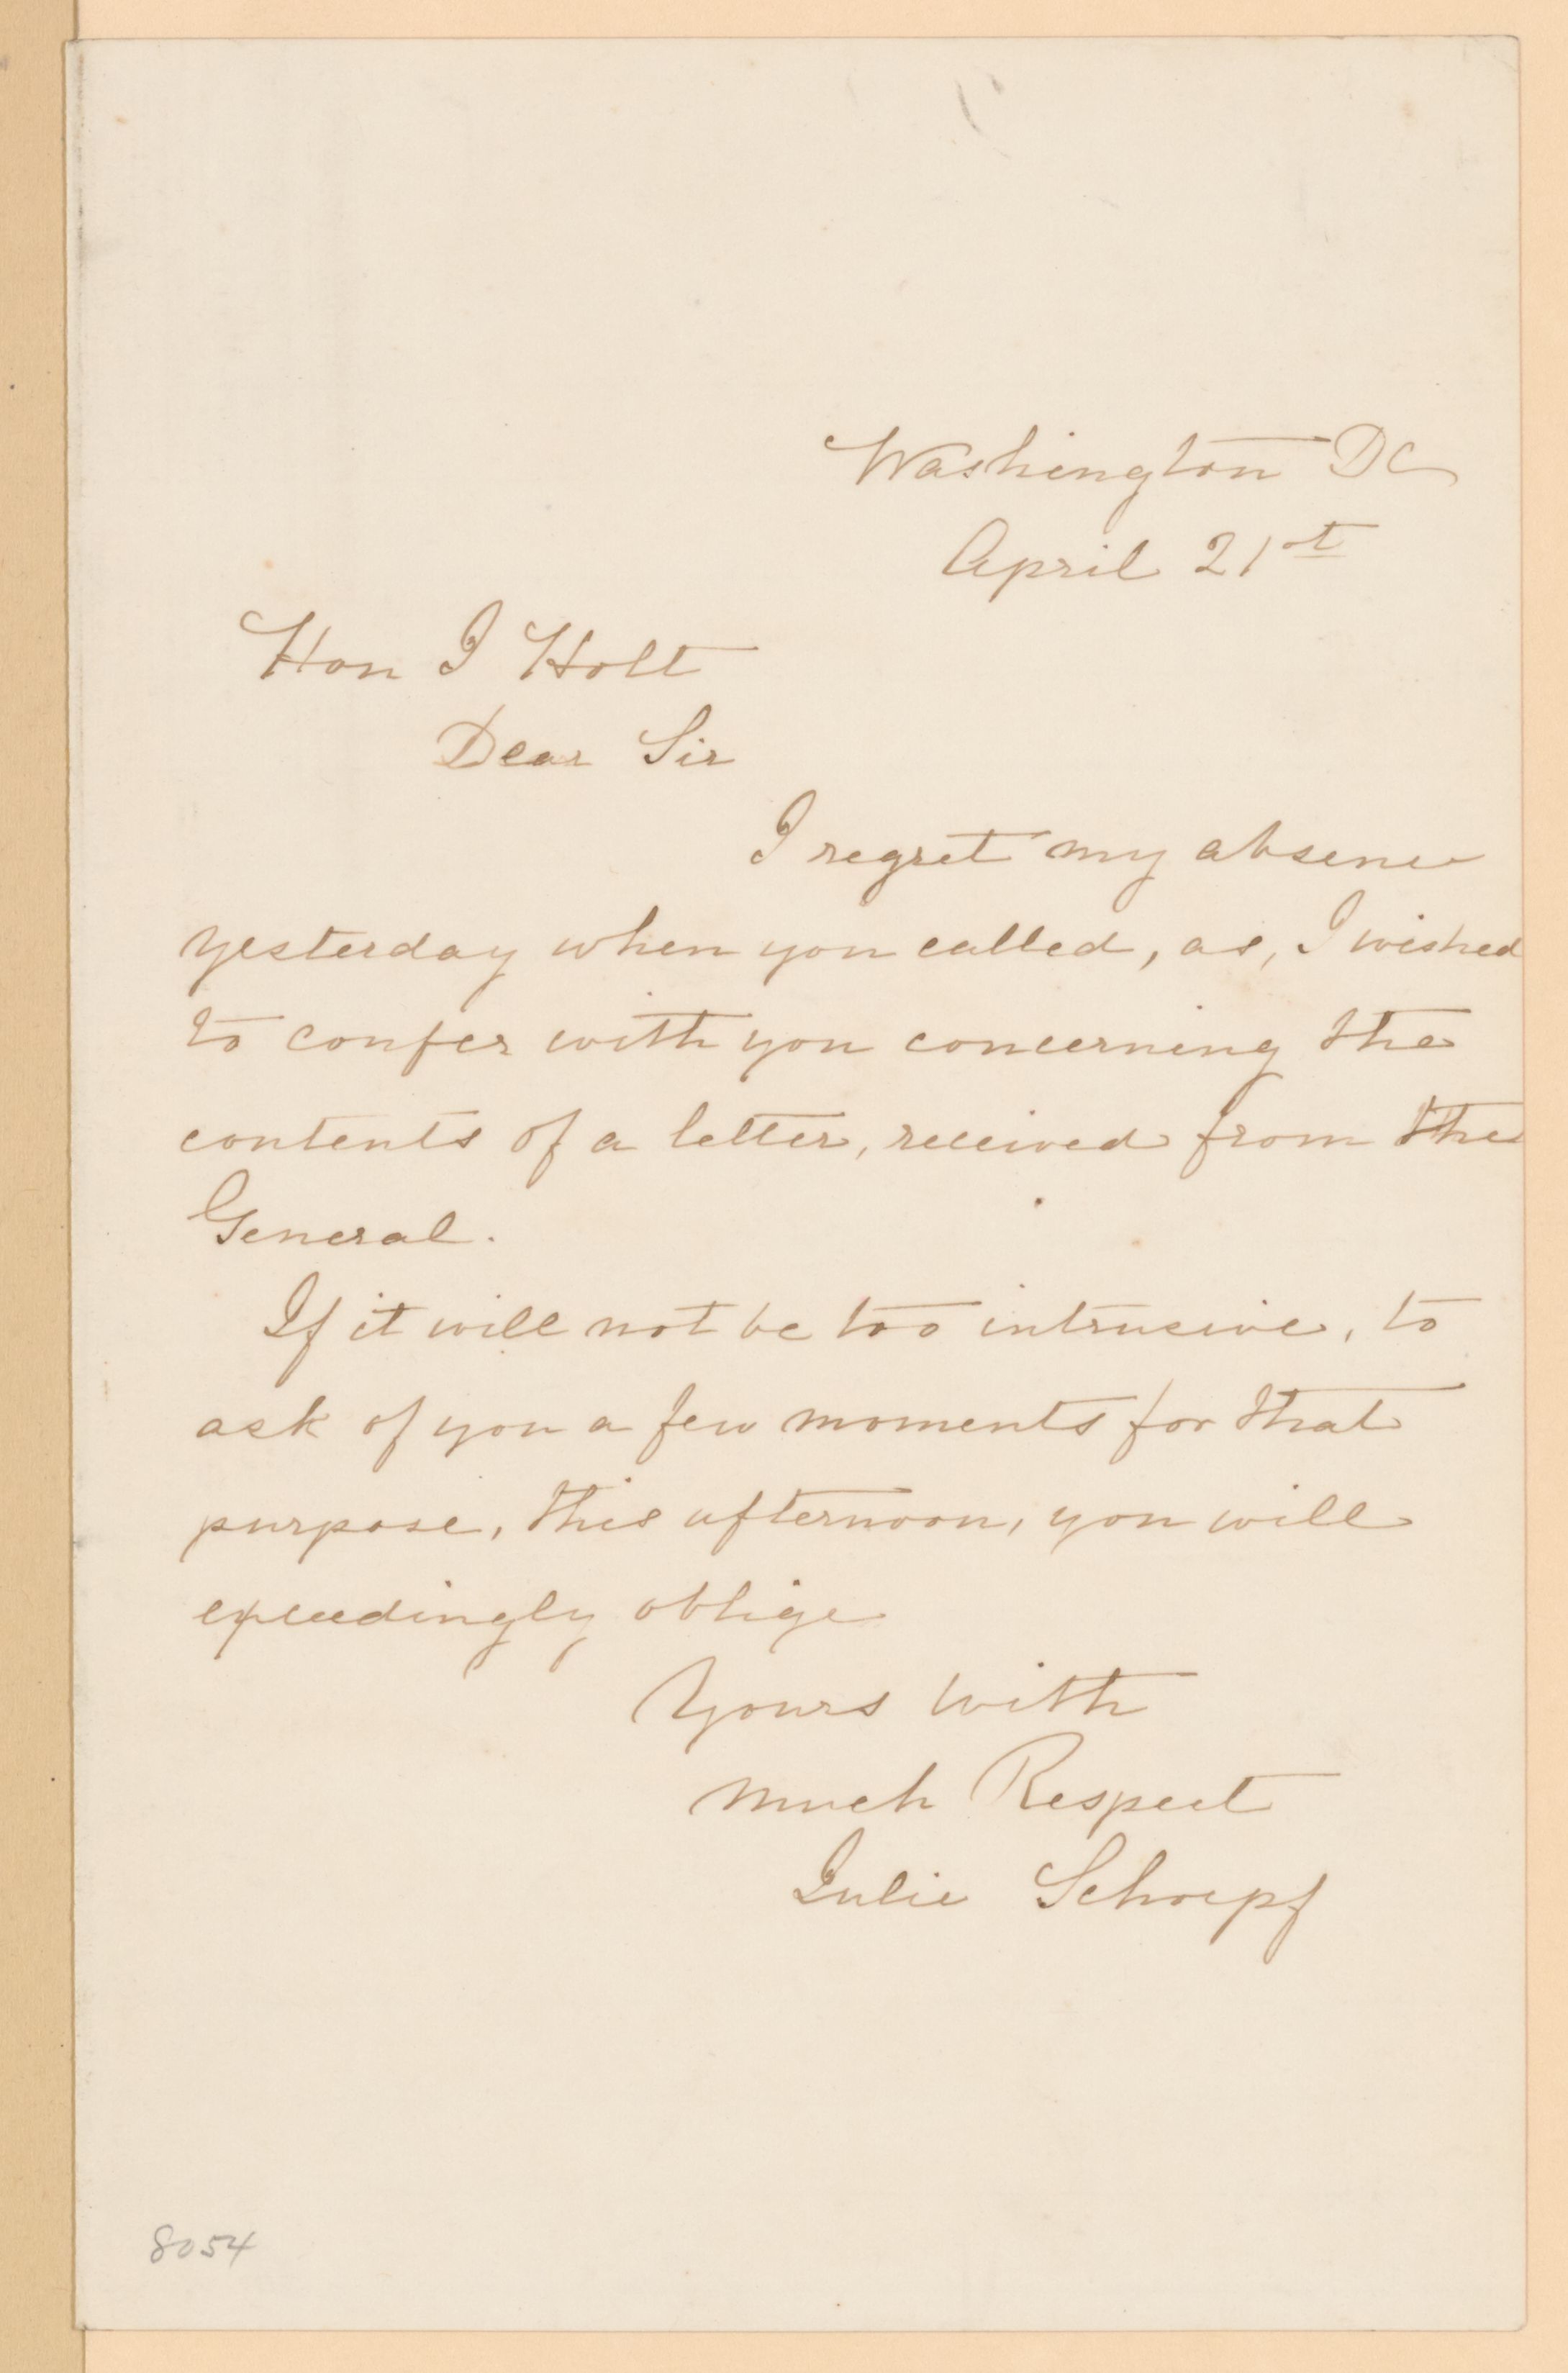 Washington DC
April 21st
Hon J Holt
Dear Sir
I regret my absence
yesterday when you called, as, I wished
to confer with you concerning the
contents of a letter, received from the
General.
If it will not be too intrusive, to
ask of you a few moments for that
purpose, this afternoon, you will
exceedingly oblige
Yours with
much Respect
Julie Schoepf
8054